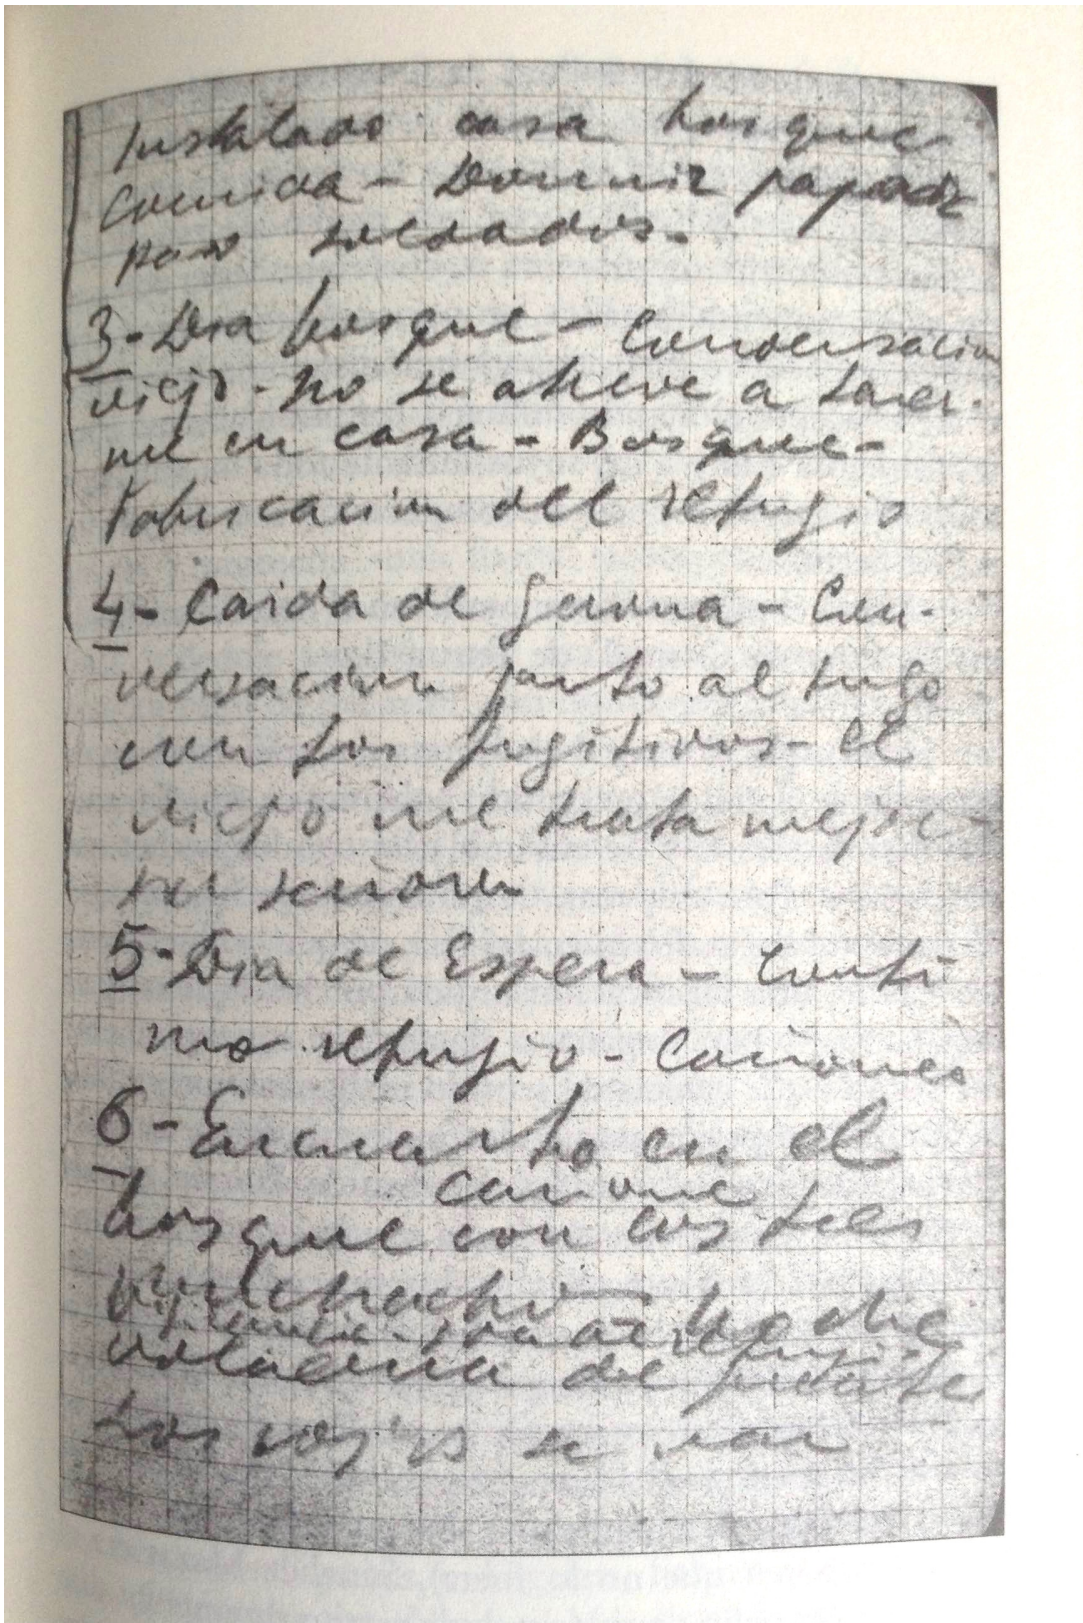 Instalado casa bosque
comida - Dormir pajar
paso soldados.-
3- Dia bosque - Conversacion
viejo - no se atreve a tener-
me en casa - Bosque -
Fabricacion del refugio
4- Caida de Gerona - Con-
versacion junto al fuego
con los fugitivos - el
viejo me trata mejor -
5- Dia de Espera - Conti
nuo refugio - Cañones
6- Encuentro en el
bosque con los tres
muchachos
noche
los rojos se van